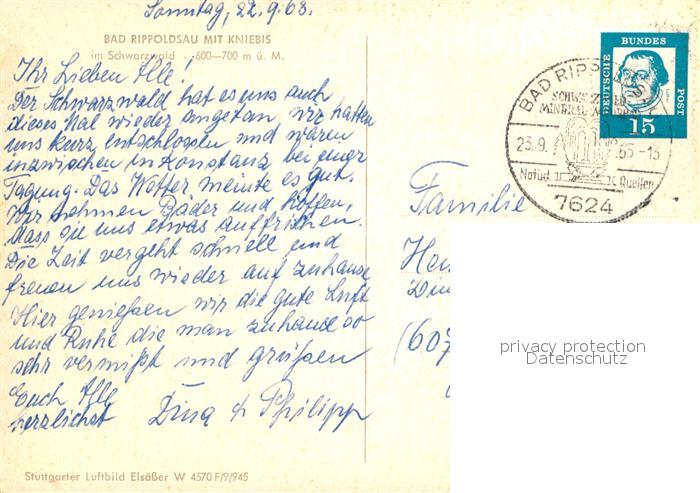 Sonntag, 22.9.63.
BAD RIPPOLDSAU MIT KNIEBIS
im Schwarzwald 600—700 m ü. M.
Ihr Lieben Alle!
Der Schwarzwald hat es uns auch
dieses Mal wieder angetan, wir hatten
uns kurz entschlossen und waren
inzwischen in Konstanz bei einer
Tagung. Das Wetter meinte es gut.
Wir nehmen Bäder und hoffen,
dass sie uns etwas auffrischen.
Die Zeit vergeht schnell und
freuen uns wieder auf zuhause
Hier genießen wir die gute Luft
und Ruhe die man zuhause so
sehr vermißt und grüßen
Euch Alle
herzlichst Dina & Philipp
Stuttgarter Luftbild Elsäßer W 4570 F/9/945
DEUTSCHE
BUNDES
POST
15
BAD RIPPOLDSAU
SCHWARZWALD
MINERAL
23.9. 63-13
Natürl. Quellen
7624
Familie
(607
privacy protection
Datenschutz